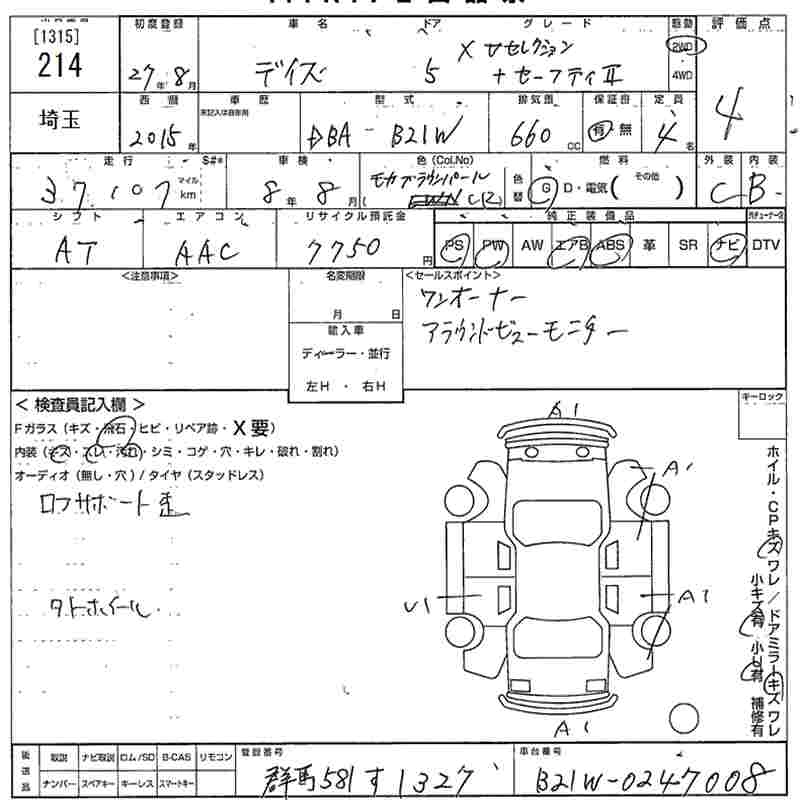 [1315]
214
埼玉
初度登録 車名 ドア グレード 駆動 評価点
27年8月 デイズ 5 X Vセレクション
+セーフティⅡ 2WD
4WD 4
西暦 車歴 型式 排気量 保証書 定員
2015年 未記入は自家用 DBA-B21W 660cc 有・無 4名
走行 S#* 車検 色(Col,No) 燃料 外装 内装
37,107 マイル km 8年8月 モカブラウンパール 色替 G D・電気 (その他) C B-
シフト エアコン リサイクル預託金 純正装備品
AT AAC 7750円 PS PW AW エアB ABS 革 SR ナビ DTV
<注意事項> 名変期限 <セールスポイント>
月 日 ワンオーナー
輸入車 アラウンドビューモニター
ディーラー・並行
左H・右H
キーロック
<検査員記入欄>
Fガラス(キズ・飛石・ヒビ・リペア跡・X要)
内装(キズ・スレ・汚れ・シミ・コゲ・穴・キレ・破れ・割れ)
オーディオ(無し・穴)/タイヤ(スタッドレス)
ロアサポート歪
タトホイール
A1
A1
U1
A1
A1
ホイル・CPキズワレ/ドアミラーキズワレ
小キズ有 小U有 補修有
後送品 取説 ナビ取説 ロム/SD B-CAS リモコン 登録番号 車台番号
ナンバー スペアキー キーレス スマートキー 群馬581す1327 B21W-0247008